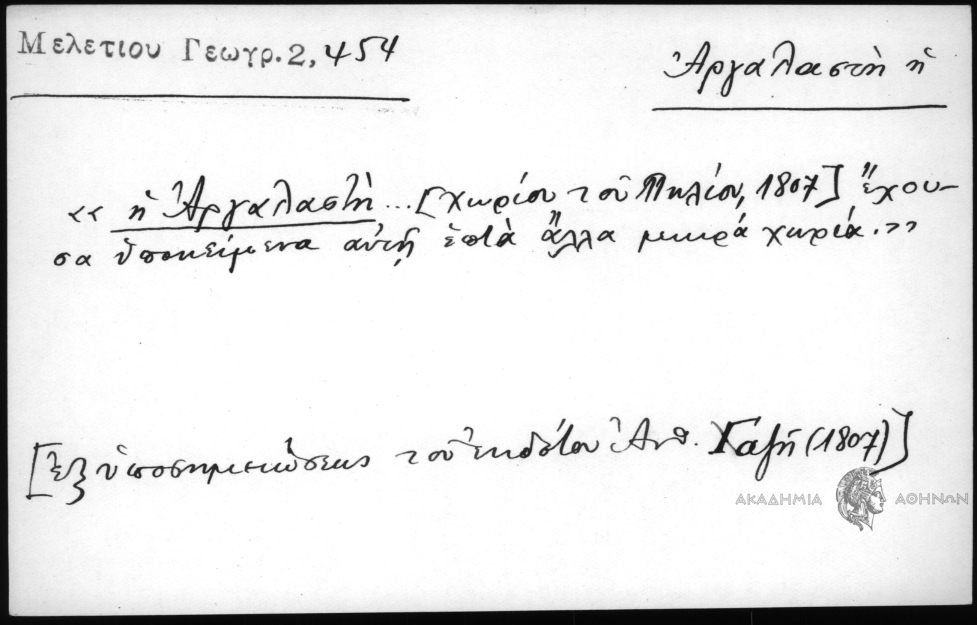 Μελετιου Γεωγρ.2, 454
Ἀργαλαστὴ ἡ
«ἡ Ἀργαλαστὴ ... [χωρίον τοῦ Πηλίου, 1807] ἔχου-
σα ὑποκείμενα αὐτῇ ἑπτὰ ἄλλα μικρά χωρία.»
[ἐξ ὑποσημειώσεως τοῦ ἐκδότου Ἀνθ. Γαζῆ (1807)]
ΑΚΑΔΗΜΙΑ ΑΘΗΝΩΝ